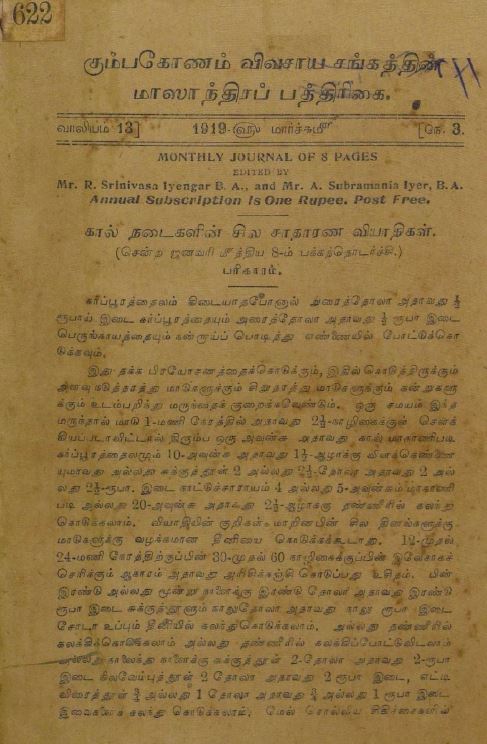 622
கும்பகோணம் விவசாய சங்கத்தின்
மாஸாந்திரப் பத்திரிகை.
வாலியம் 13] 1919-ஹு மார்ச்சுமீ [நெ. 3.
MONTHLY JOURNAL OF 8 PAGES
EDITED BY
Mr. R. Srinivasa Iyengar B. A., and Mr. A. Subramania Iyer, B.A.
Annual Subscription is One Rupee. Post Free.
கால் நடைகளின் சில சாதாரண வியாதிகள்.
(சென்ற ஜனவரி மீத்திய 8-ம் பக்கத்தொடர்ச்சி.)
பரிகாரம்.
கர்ப்பூரத்தைலம் கிடையாதபோனால் அரைத்தோலா அதாவது ½
ரூபாய் இடை கர்ப்பூரத்தையும் அரைத்தோலா அதாவது ½ ரூபா இடை
பெருங்காயத்தையும் நன்றாய்ப் பொடித்து எண்ணெயில் போட்டுக்கொ
டுக்கவும்.
இது தக்க பிரயோசனத்தைக்கொடுக்கும், இதில் கொடுத்திருக்கும்
அளவு நடுத்தரத்து மாடுகளுக்கும் சிறுதரத்து மாடுகளுக்கும் கன்றுகளு
க்கும் உடம்பறிந்து மருந்தைக் குறைக்கவேண்டும். ஒரு சமயம் இந்த
மருந்தால் மாடு 1-மணி நேரத்தில் அதாவது 2½-நாழிகைக்குள் சௌக்
கியப்படாவிட்டால் திரும்ப ஒரு அவுன்சு அதாவது கால் மாகாணிபடி
கர்ப்பூரத்தைலமும் 10-அவுன்சு அதாவது 1½-ஆழாக்கு விளக்கெண்ணெ
யுமாவது அல்லது சுக்குத்தூள் 2 அல்லது 2½-தோலா அதாவது 2 அல்
லது 2½-ரூபா. இடை நாட்டுச்சாராயம் 4 அல்லது 5-அவுன்சும் மாகாணி
படி அல்லது 20-அவுன்சு அதாவது 2½-ஆழாக்கு தண்ணீரில் கலந்து
கொடுக்கலாம். வியாதியின் குறிகள் மாறினபின் சில தினங்களுக்கு
மாடுகளுக்கு வழக்கமான தீனியை கொடுக்கக்கூடாது. 12-முதல்
24-மணி நேரத்திற்குப்பின் 30-முதல் 60 நாழிகைக்குப்பின் இலேசாகச்
செரிக்கும் ஆகாரம் அதாவது அரிசிக்கஞ்சி கொடுப்பது உசிதம். பின்
இரண்டு அல்லது மூன்று நாளைக்கு இரண்டு தோலா அதாவது இரண்டு
ரூபா இடை சுக்குத்தூளும் நாலுதோலா அதாவது நாலு ரூபா இடை
சோடா உப்பும் தீனியில் கலந்துகொடுக்கலாம். அல்லது தண்ணீரில்
கலக்கிக்கொடுக்கலாம் அல்லது தண்ணீரில் கலக்கிப்போட்டுவிடலாம்
அல்லது நாலைந்து நாளைக்கு சுக்குத்தூள் 2-தோலா அதாவது 2-ரூபா
இடை நிலவேம்புத்தூள் 2-தோலா அதாவது 2 ரூபா இடை, எட்டி
விரைத்தூள் ¾ அல்லது 1 தோலா அதாவது ¾ அல்லது 1 ரூபா இடை
இவைகளைக் கலந்து கொடுக்கலாம்; மேல் சொல்லிய சிகிச்சைகளில்